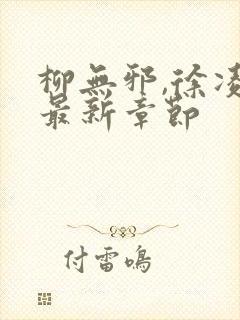 柳無邪,徐凌
最新章節
付雷鳴